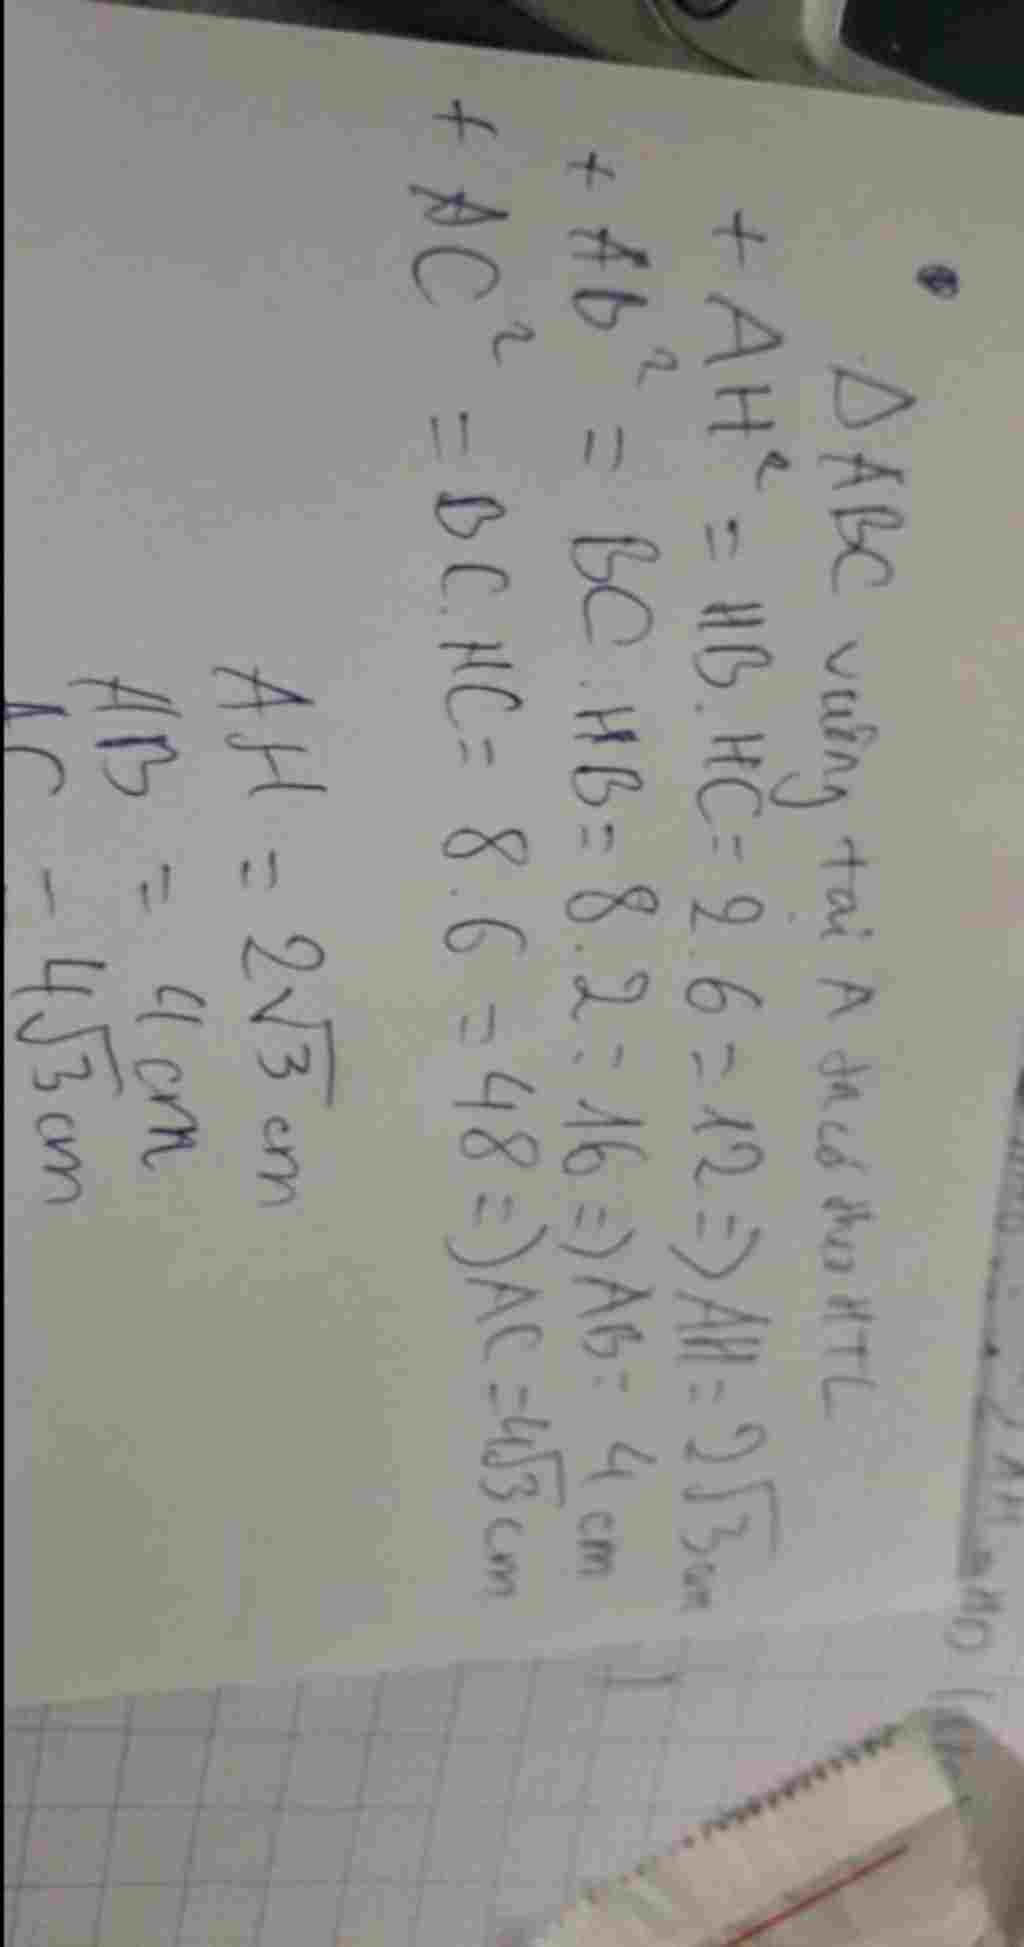 ΔABC vuông tại A ta có theo HTL
+ AH² = HB.HC = 2.6 = 12 => AH = 2√3 cm
+ AB² = BC.HB = 8.2 = 16 => AB = 4 cm
+ AC² = BC.HC = 8.6 = 48 => AC = 4√3 cm
AH = 2√3 cm
AB = 4 cm
AC = 4√3 cm